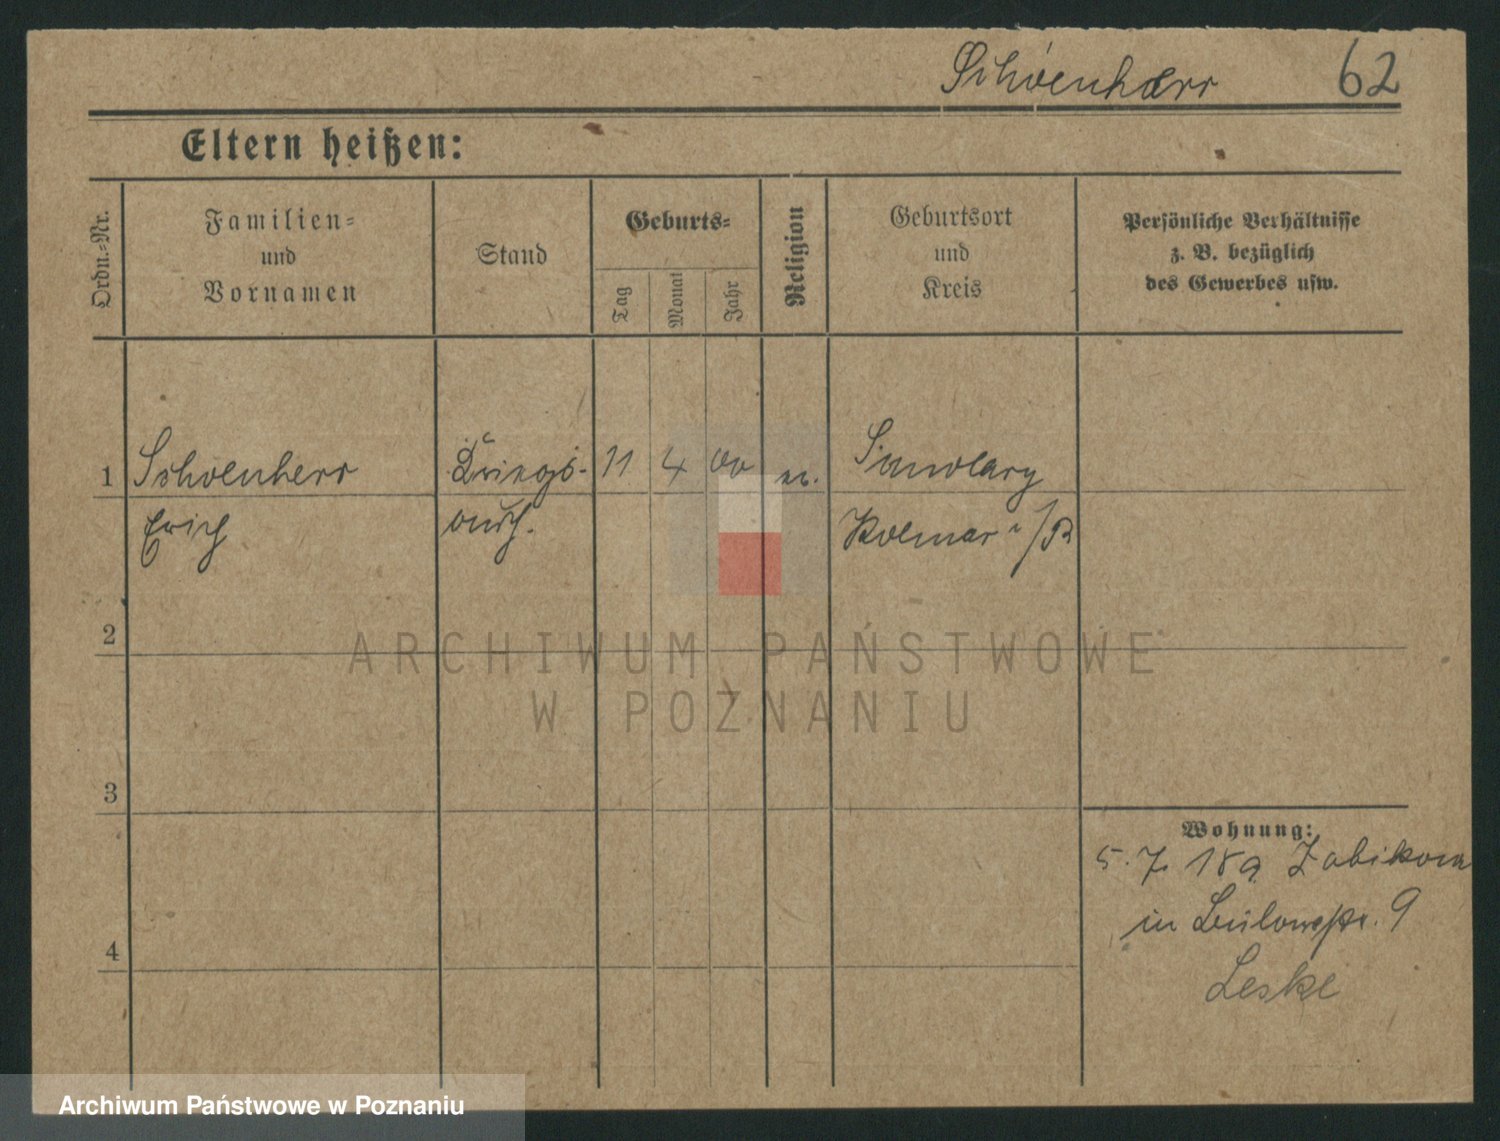 Schoenherr 62
Eltern heißen:
Ordn.-Nr.
Familien-
und
Vornamen
Stand
Geburts-
Tag
Monat
Jahr
Religion
Geburtsort
und
Kreis
Persönliche Verhältnisse
z. B. bezüglich
des Gewerbes usw.
1 Schoenherr 11 4 00 ev.
Erich
Kolmar i/P
2
3
4
Wohnung:
5. 7. 18 a Zabikowo
in Bülowstr. 9
Leske
ARCHIWUM PAŃSTWOWE
W POZNANIU
Archiwum Państwowe w Poznaniu